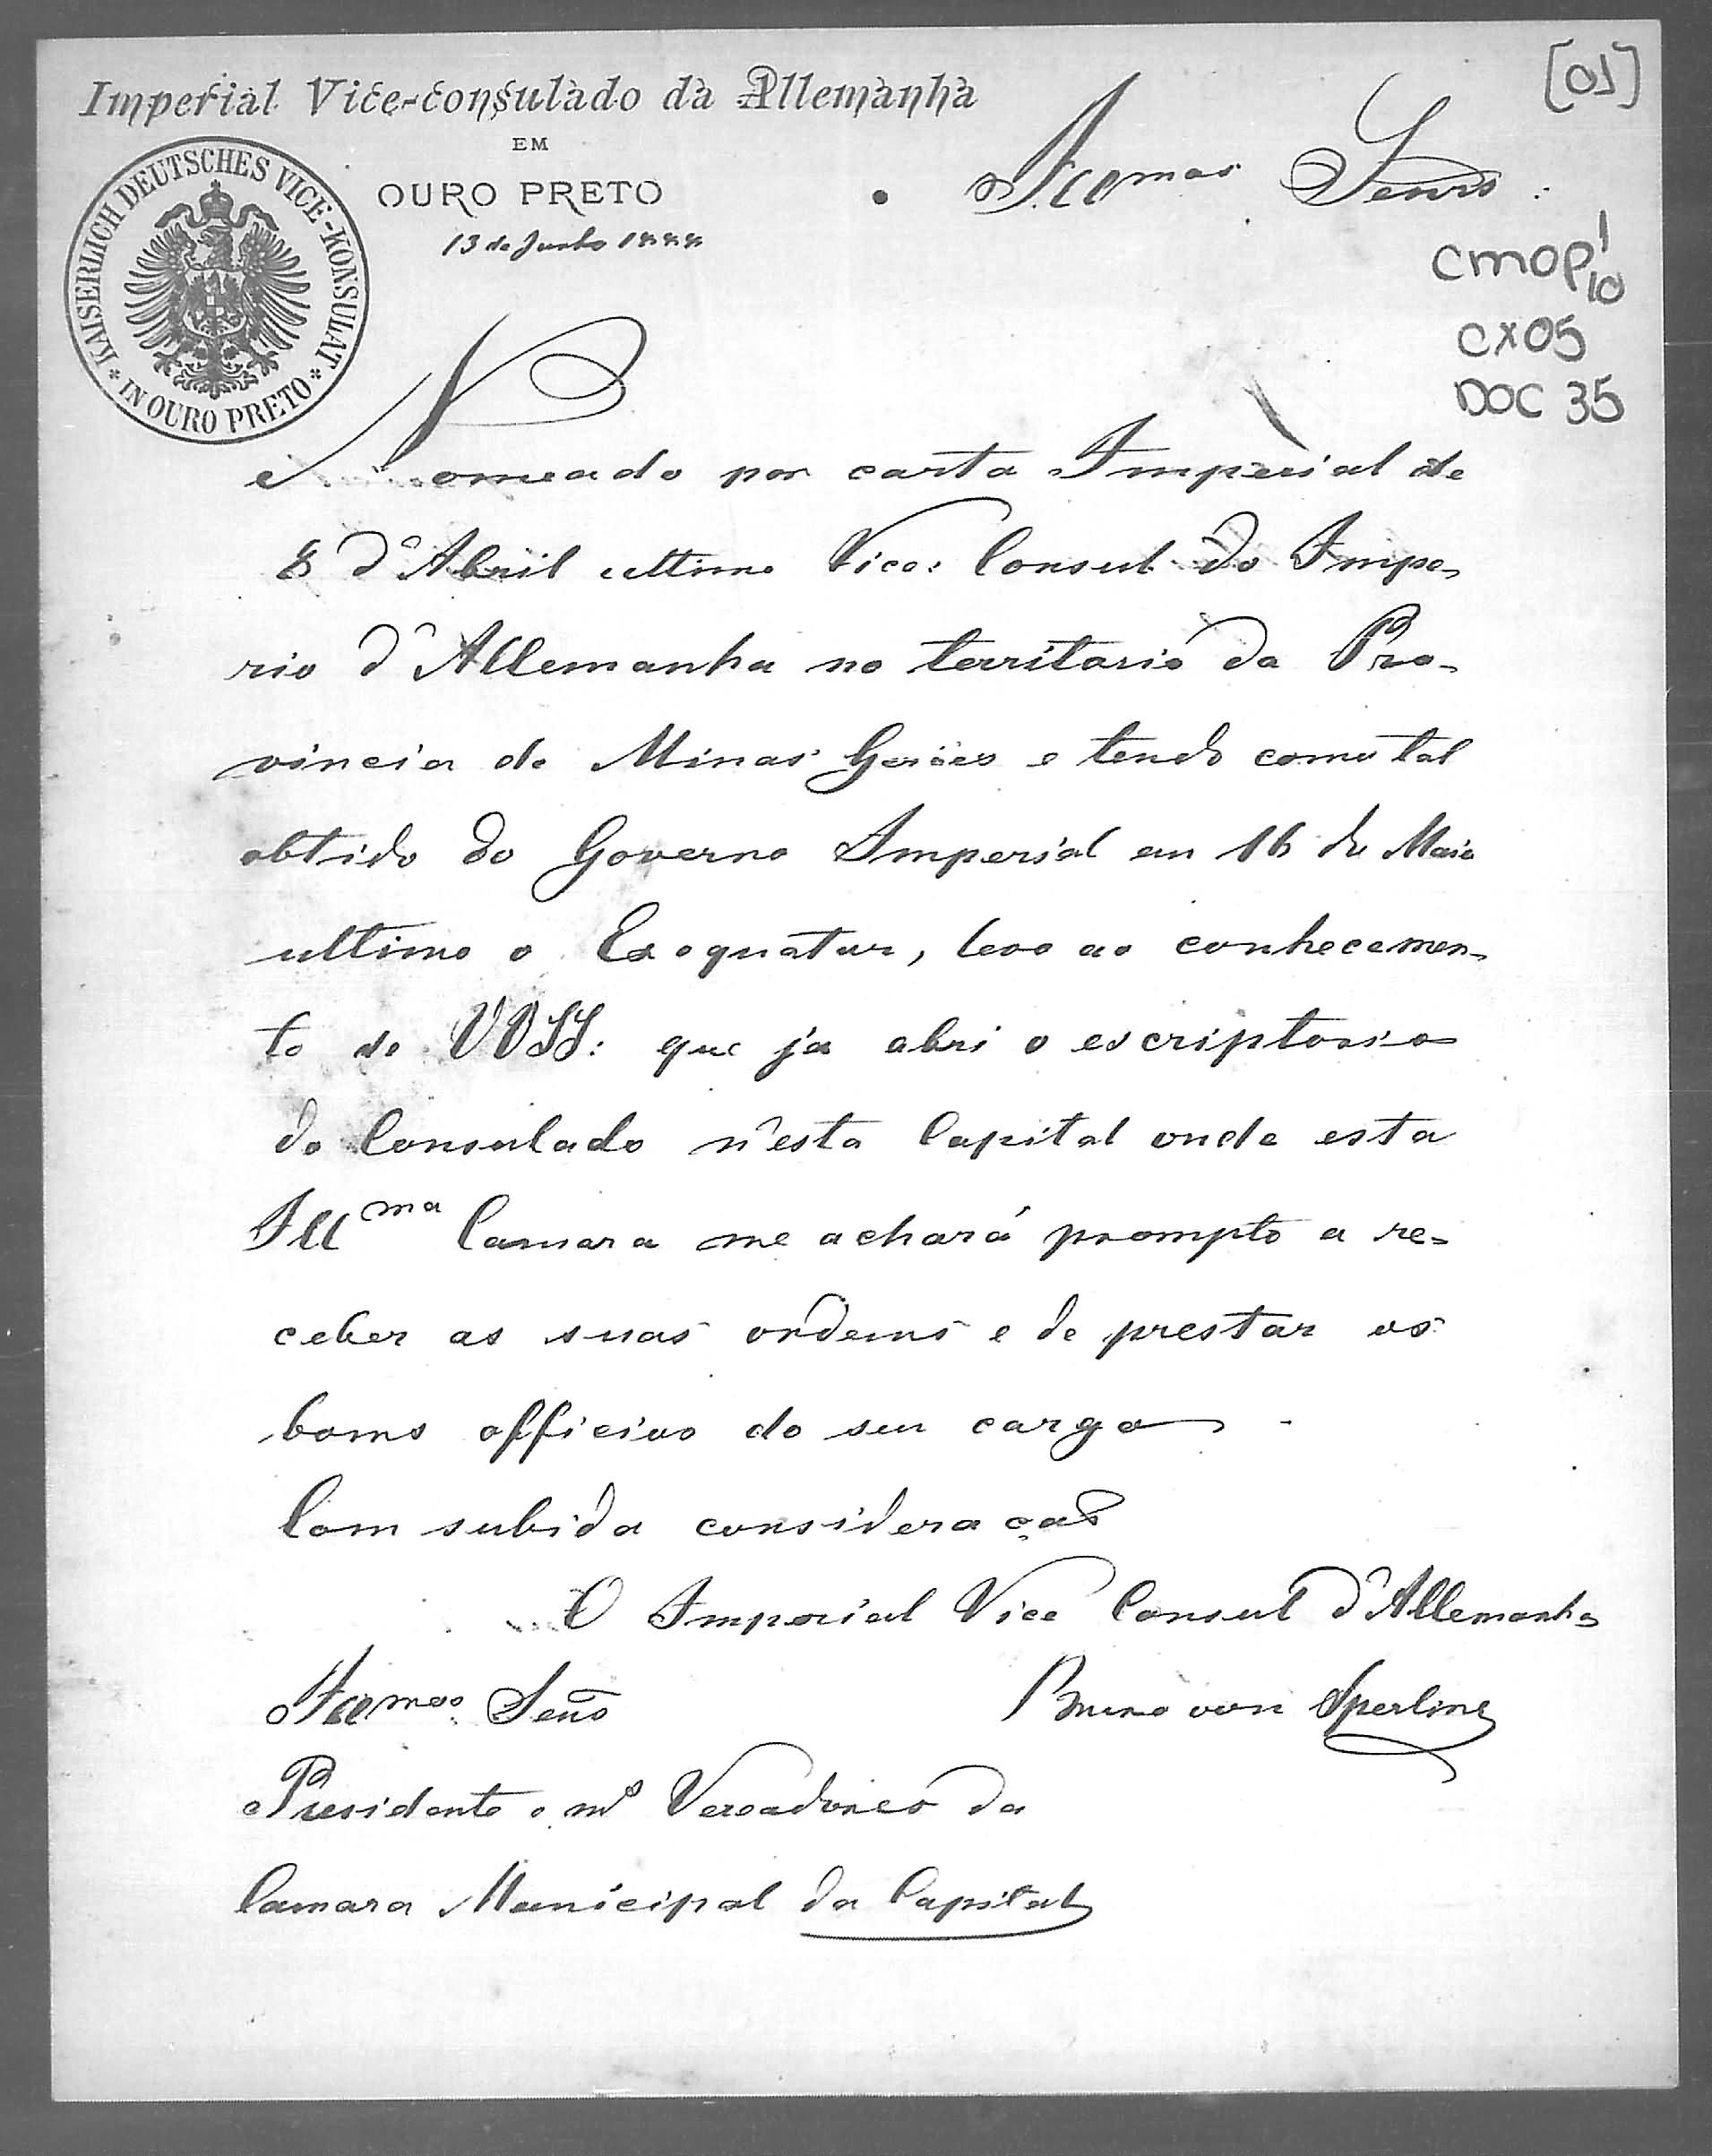 [01]
Imperial Vice-consulado da Allemanha
EM
OURO PRETO
13 de Junho 1888
KAISERLICH DEUTSCHES VICE-KONSULAT
* IN OURO PRETO *
Illmos Senrs:
cmop 1/10
cx 05
DOC 35
Nomeado por carta Imperial de
8 d'Abril ultimo Vice: Consul do Impe-
rio d'Allemanha no territorio da Pro-
vincia de Minas Geräes e tendo como tal
obtido do Governo Imperial em 16 de Maio
ultimo o Exequatur, levo ao conhecemen-
to de VVSS: que ja abri o escriptorio
do Consulado n'esta Capital onde esta
Illma Camara me achará prompto a re-
ceber as suas ordems e de prestar os
boms officios do seu cargo.
Com subida consideração
O Imperial Vice Consul d'Allemanha
Illmos Senrs
Bruno von Sperling
Presidente e ms Vereadores da
Camara Municipal da Capital